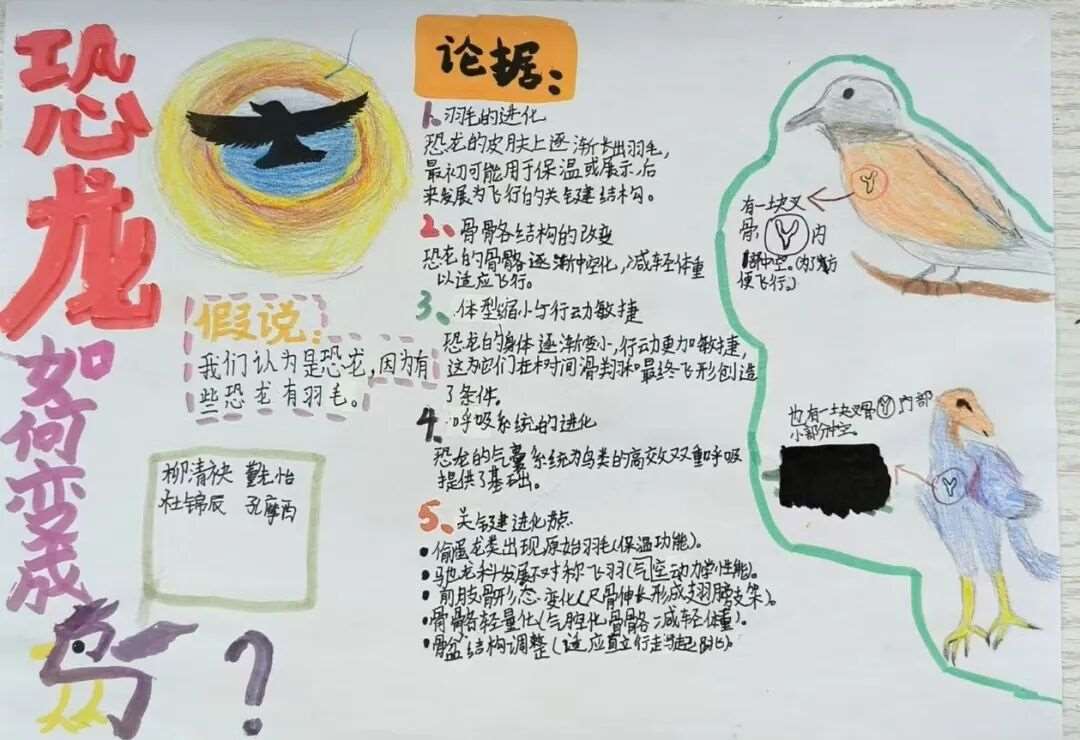 恐龙如何变成鸟?
假说:
我们认为是恐龙,因为有
些恐龙有羽毛。
柳清袂
杜锦辰 孔摩西
论据:
1、羽毛的进化
恐龙的皮肤上逐渐长出羽毛,
最初可能用于保温或展示,后
来发展为飞行的关键结构。
2、骨骼结构的改变
恐龙的骨骼逐渐中空化,减轻体重
以适应飞行。
3、体型缩小与行动敏捷
恐龙的身体逐渐变小,行动更加敏捷,
这为它们在树间滑翔和最终飞行创造
了条件。
4、呼吸系统的进化
恐龙的气囊系统为鸟类的高效双重呼吸
提供了基础。
5、关键进化点
•偷蛋龙类出现原始羽毛(保温功能)。
•驰龙科发展不对称飞羽(气空动力学性能)。
•前肢骨形态变化(尺骨伸长形成翅膀支架)。
•骨骼轻量化(气腔化骨骼减轻体重)。
•骨盆结构调整(适应直立行走与起飞)。
有一块叉
骨,Y内
部中空。(方
便飞行。)
也有一块叉骨Y内部
小部分中空。